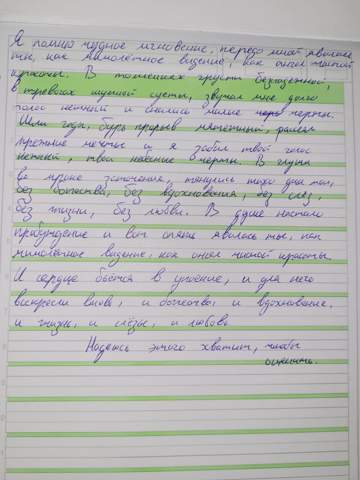 Я помню чудное мгновение, передо мной явилась
ты, как мимолётное видение, как гений чистой
красоты. В томлениях грусти безнадежной,
в тревогах шумной суеты, звучал мне долго
голос нежный и снились милые черты.
Шли годы, бурь порыв мятежный, рассеял
прежние мечты и я забыл твой голос
нежный, твои небесные черты. В глуши
во мраке заточения, тянулись тихо дни мои,
без божества, без вдохновения, без слёз,
без жизни, без любви. В душе настало
пробуждение и вот опять явилась ты, как
мимолётное видение, как гений чистой красоты.
И сердце бьётся в упоение, и для него
воскресли вновь, и божество, и вдохновение,
и жизнь, и слёзы, и любовь.
Надеюсь этого хватит, чтобы
оценить.